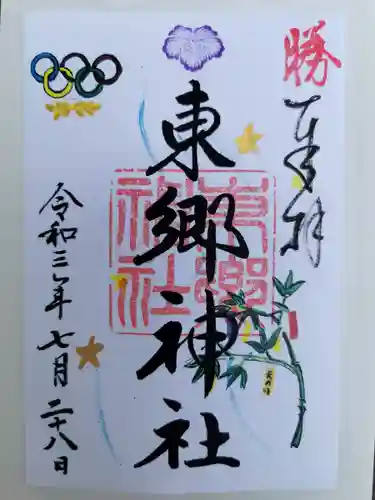 勝
奉拝
東郷神社
東郷
神社
令和三年七月二十八日